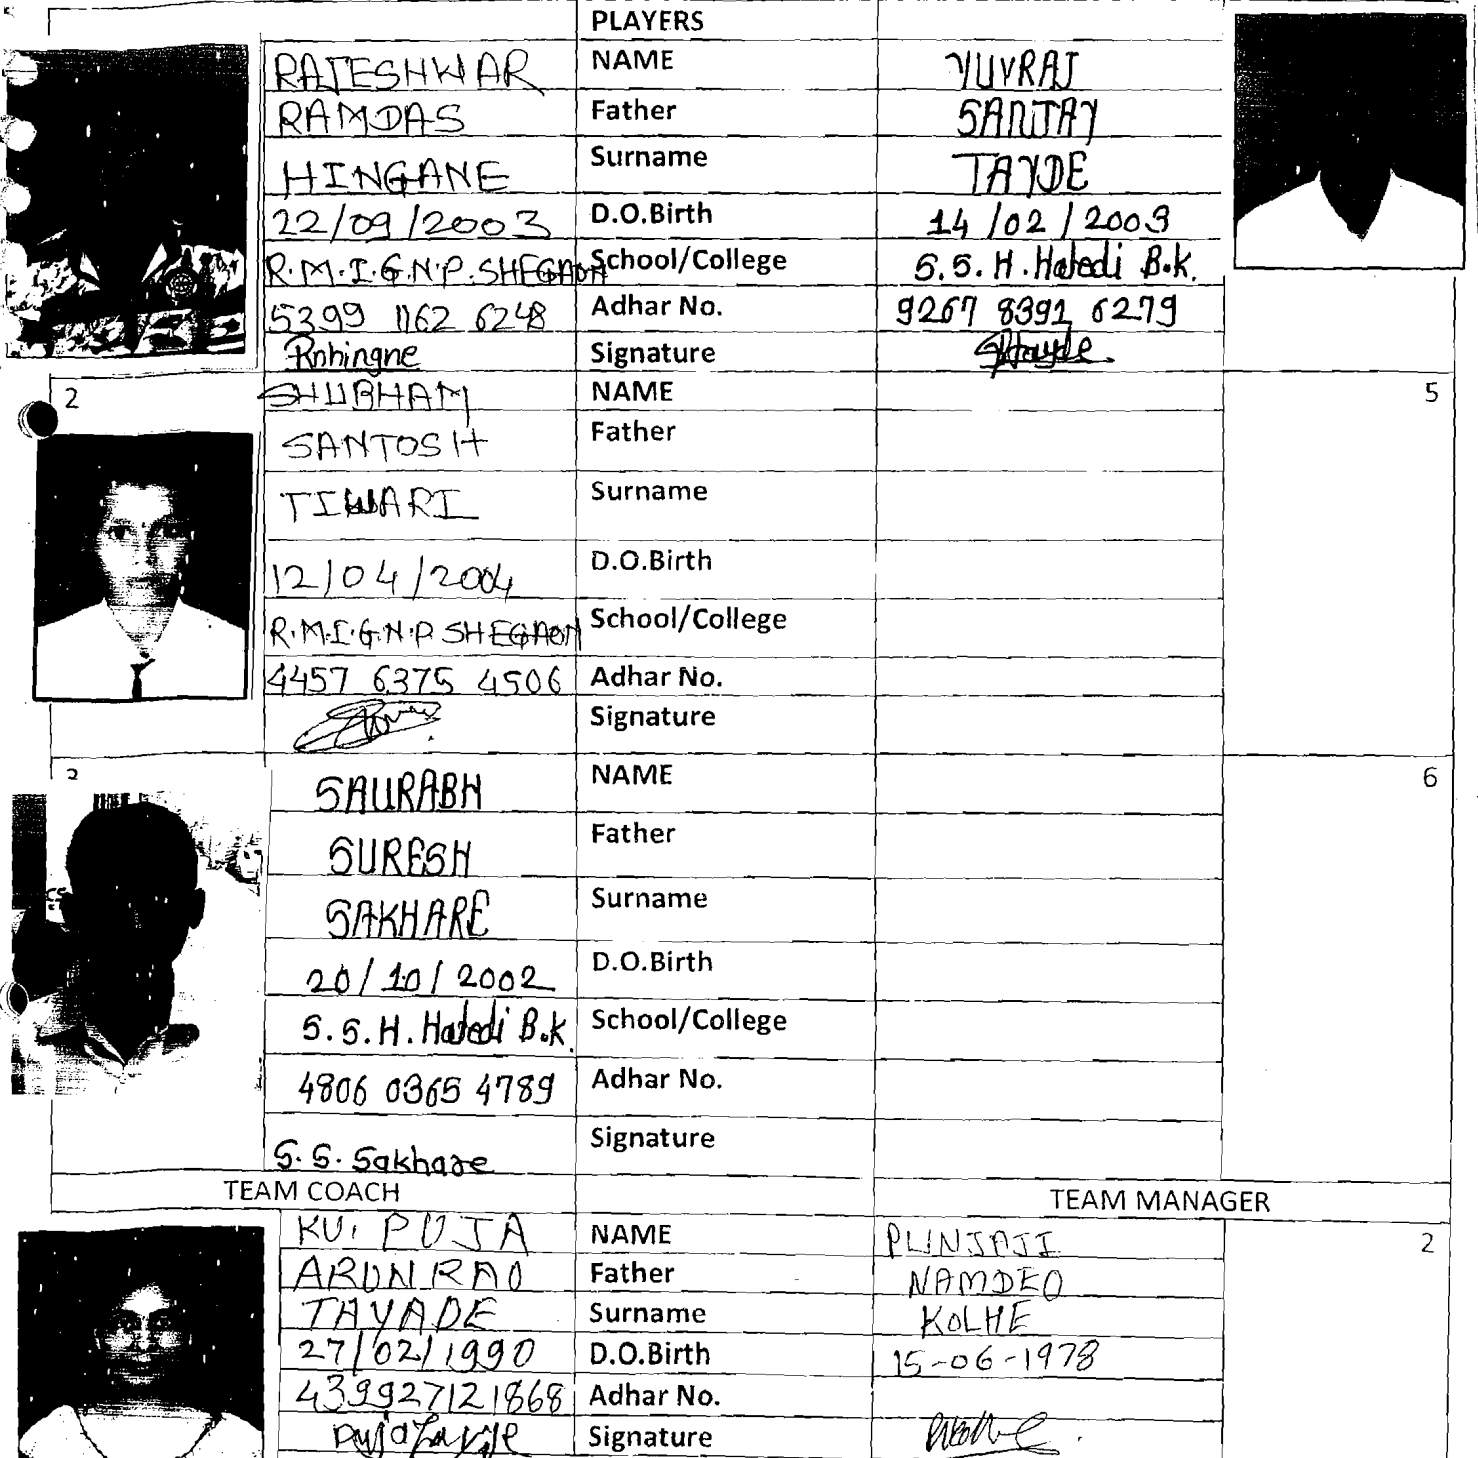 PLAYERS
RAJESHWAR NAME YUVRAJ
RAMDAS Father SANJAY
HINGANE Surname TAYDE
22/09/2003 D.O.Birth 14/02/2003
R.M.I.G.N.P. SHEGAON School/College S.S.H. Hatedi B.K.
5399 1162 6248 Adhar No. 9267 8391 6279
Rnhingne Signature
2 SHUBHAM NAME 5
SANTOSH Father
TIWARI Surname
12/04/2004 D.O.Birth
R.M.I.G.N.P. SHEGAON School/College
4457 6375 4506 Adhar No.
Signature
3 SAURABH NAME 6
SURESH Father
SAKHARE Surname
20/10/2002 D.O.Birth
S.S.H. Hatedi B.K. School/College
4806 0365 4789 Adhar No.
S.S. Sakhare Signature
TEAM COACH TEAM MANAGER
KU. PUJA NAME PUNJAJI 2
ARUNRAO Father NAMDEO
TAYADE Surname KOLHE
27/02/1990 D.O.Birth 15-06-1978
439927121868 Adhar No.
Signature